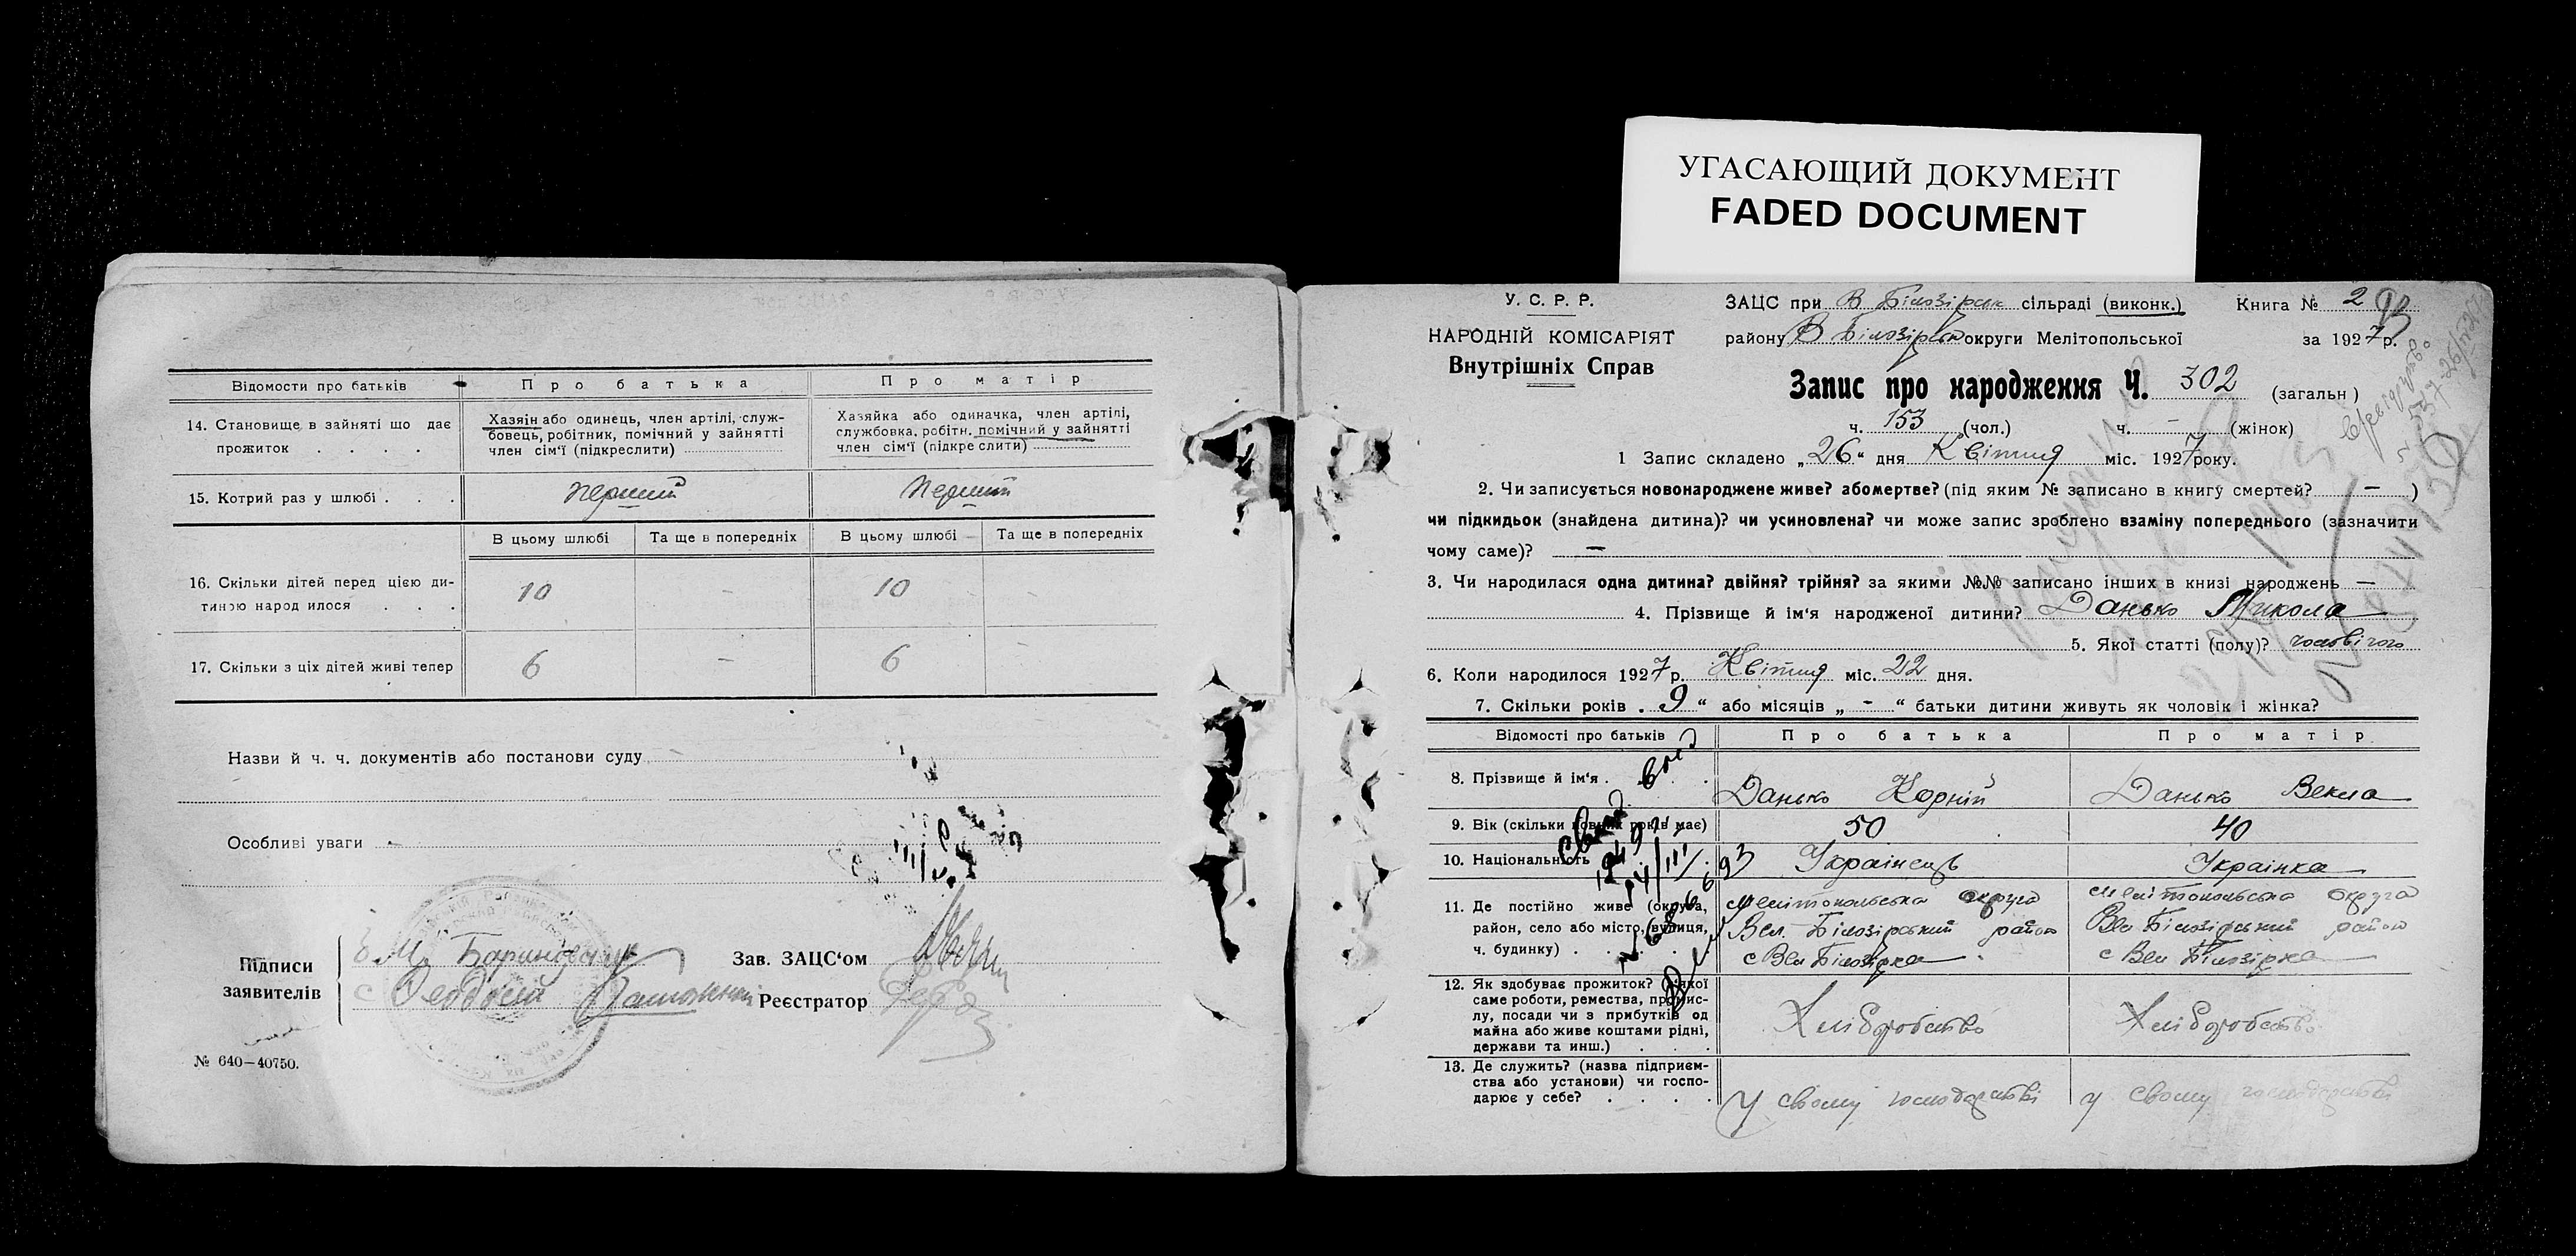 УГАСАЮЩИЙ ДОКУМЕНТ
FADED DOCUMENT
Відомости про батьків
Про батька
Про матір
14. Становище в зайняті що дає прожиток . . . .
Хазяін або одинець, член артілі, служ-
бовець, робітник, помічний у зайнятті
член сім'ї (підкреслити)
Хазяйка або одиначка, член артілі,
службовка, робітн. помічний у зайнятті
член сім'ї (підкреслити)
15. Котрий раз у шлюбі . . .
перший
перший
В цьому шлюбі
Та ще в попередніх
В цьому шлюбі
Та ще в попередніх
16. Скільки дітей перед цією ди-
тиною народилося . . .
10
-
10
-
17. Скільки з ціх дітей живі тепер
6
-
6
-
Назви й ч. ч. документів або постанови суду
Особливі уваги -
Підписи
заявителів
Зав. ЗАЦС'ом
Реєстратор
№ 640—40750.
У. С. Р. Р.
НАРОДНІЙ КОМІСАРІЯТ
Внутрішніх Справ
ЗАЦС при В Білозірск сільраді (виконк.)
Книга № 2
району В Білозірськ округи Мелітопольської
за 1927 р.
Запис про народження Ч. 302 (загальн)
ч. 153 (чол.) ч. - (жінок)
1 Запис складено „26“ дня Квітня міс. 1927 року.
2. Чи записується новонароджене живе? або мертве? (під яким № записано в книгу смертей? — )
чи підкидьок (знайдена дитина)? чи усиновлена? чи може запис зроблено взаміну попереднього (зазначити
чому саме)? —
3. Чи народилася одна дитина? двійня? трійня? за якими №№ записано інших в книзі народжень —
4. Прізвище й ім'я народженої дитини? Данько Микола
5. Якої статті (полу)? чоловічого
6. Коли народилося 1927 р. Квітня міс. 22 дня.
7. Скільки років „ 9 “ або місяців „ - “ батьки дитини живуть як чоловік і жінка?
Відомості про батьків
Про батька
Про матір
8. Прізвище й ім'я .
Данько Корній
Данько Векла
9. Вік (скільки повних років має)
50
40
10. Національність
Українець
Українка
11. Де постійно живе (округа,
район, село або місто, вулиця,
ч. будинку) . . . . .
Мелітопольська округа
Вел. Білозірський район
с Вел Білозірка
Мелітопольська округа
Вел Білозірський район
с Вел Білозірка
12. Як здобуває прожиток? (з якої
саме роботи, ремества, промис-
лу, посади чи з прибутків од
майна або живе коштами рідні,
держави та инш.) . . .
Хліборобство
Хліборобство
13. Де служить? (назва підприєм-
ства або установи) чи госпо-
дарює у себе? . . . .
У своему господарстві
у своему господарстві